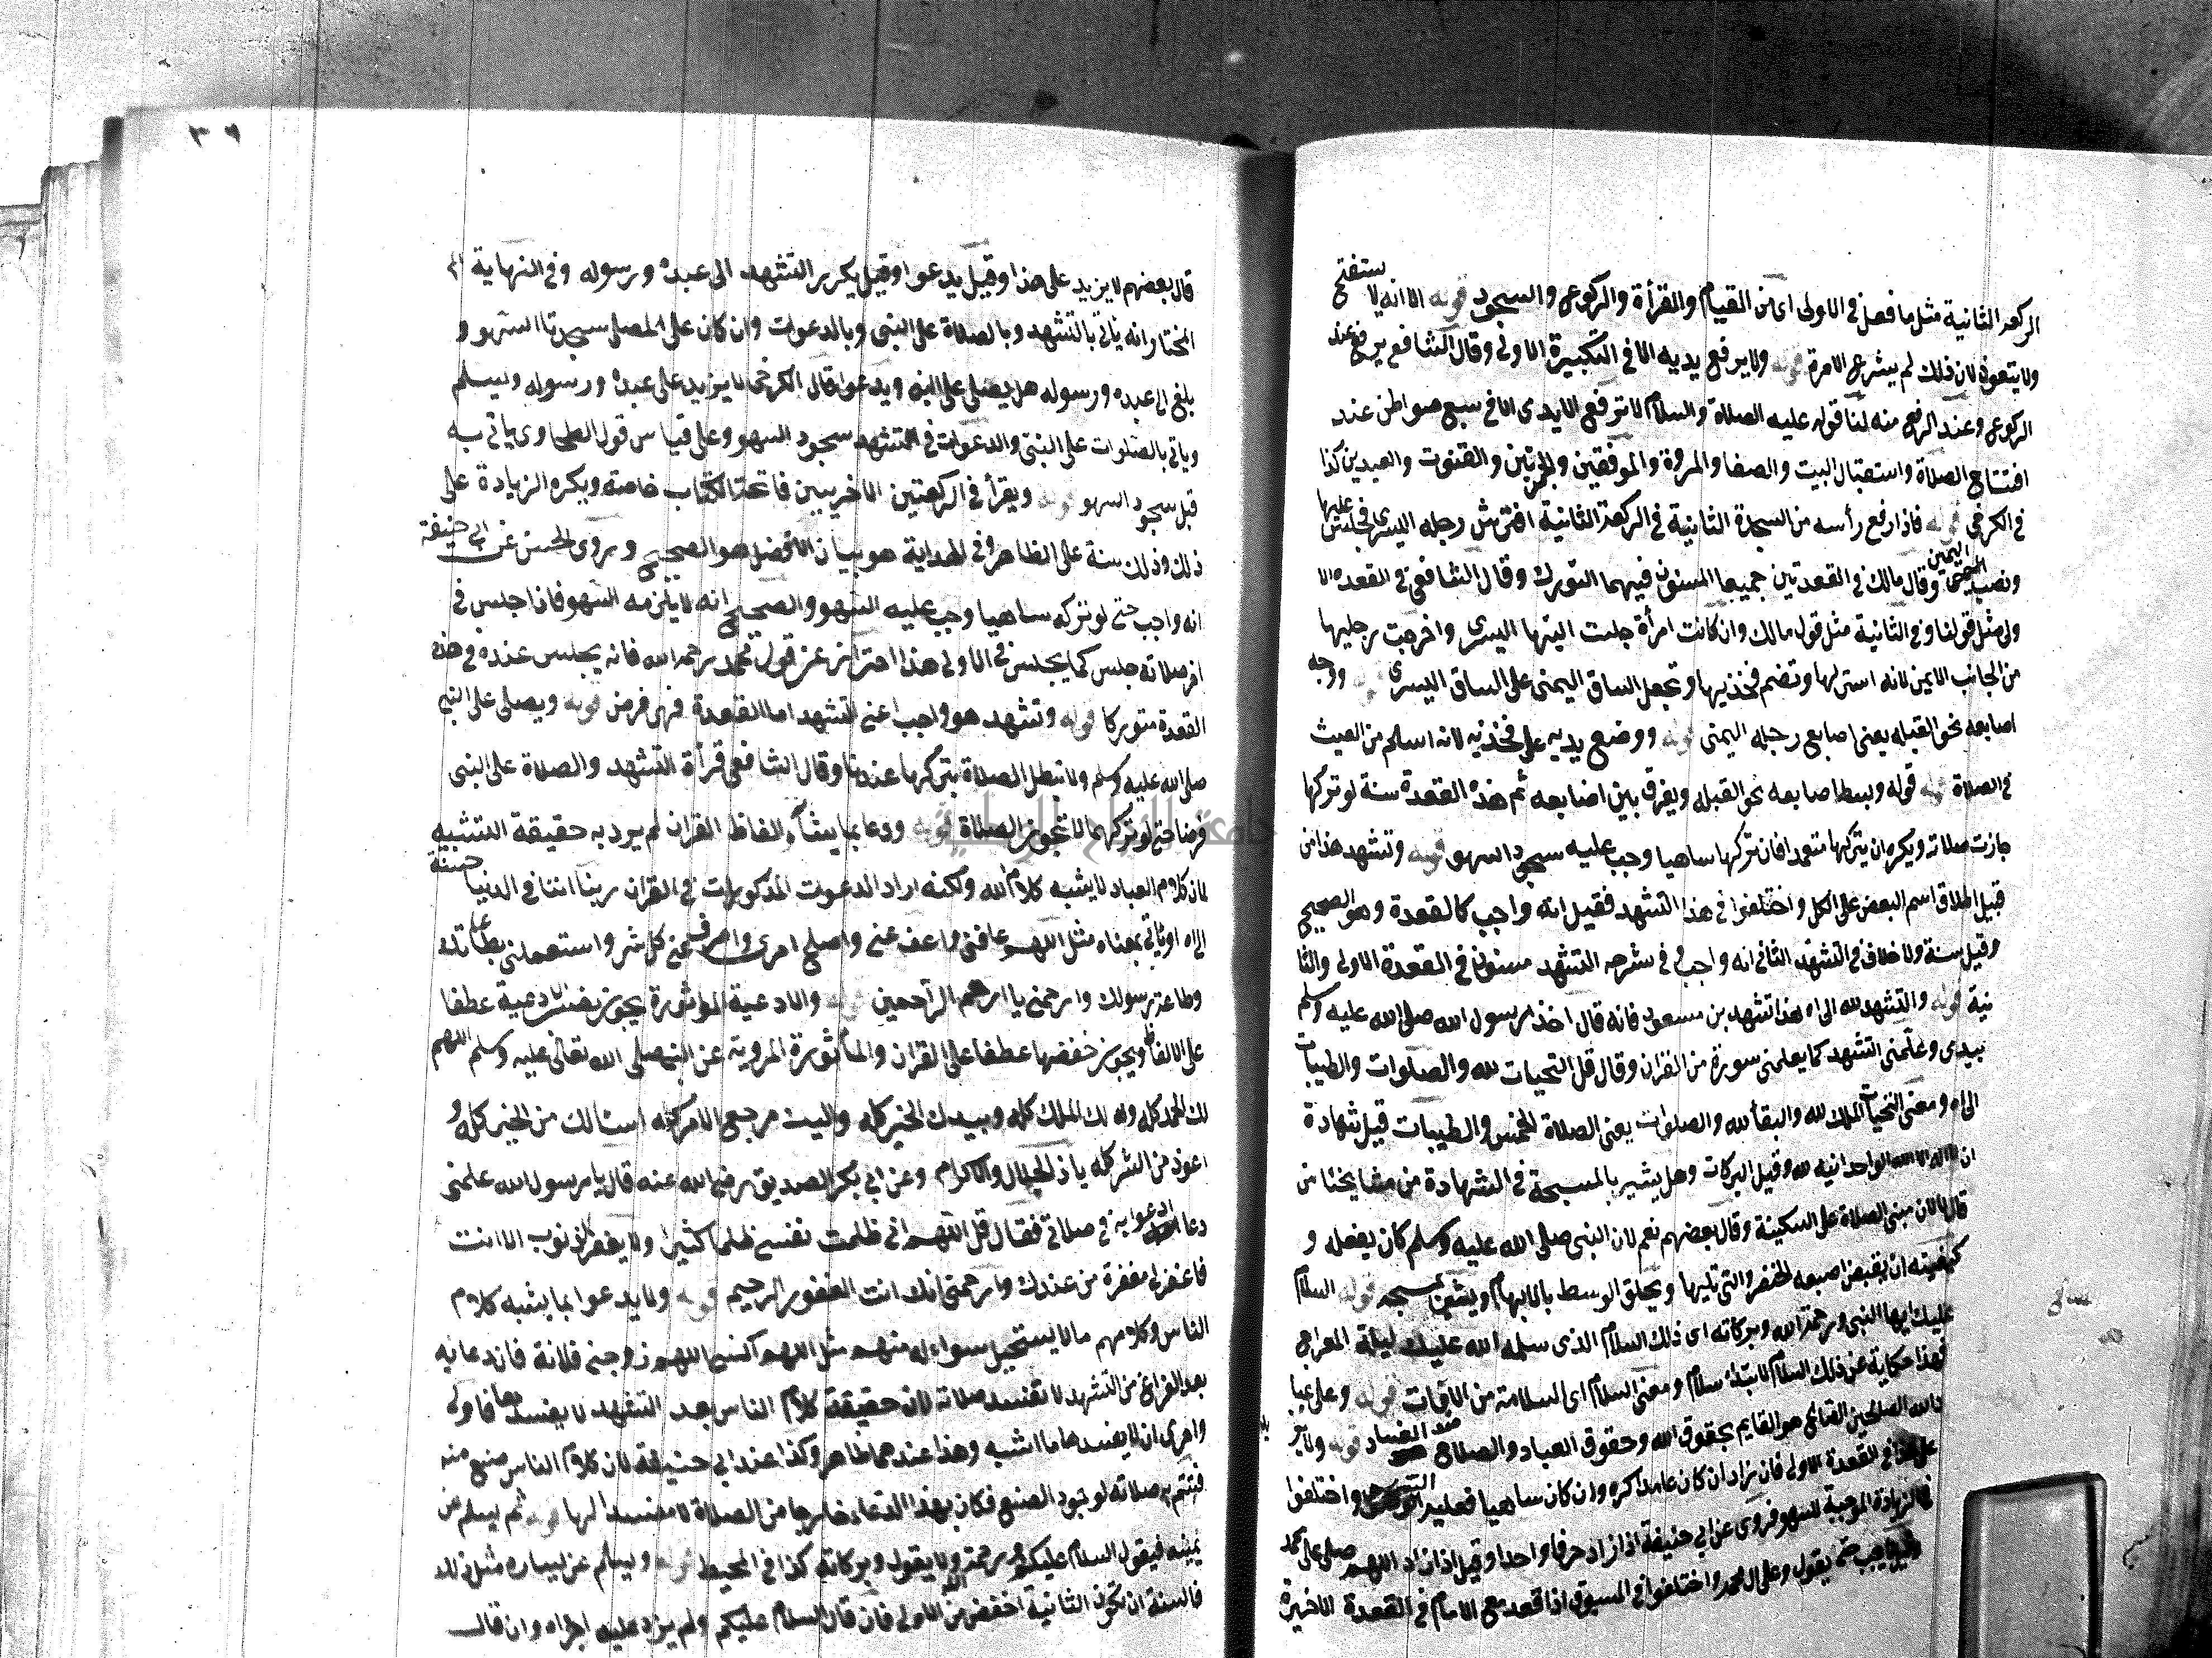 الركعة الثانية مثل ما فعل في الاولى اى من القيام والقرأة والركوع والسجود قوله الا انه لا يستفتح
ولا يتعوذ لان ذلك لم يشرع الا مرة قوله ولا يرفع يديه الا في التكبيرة الاولى وقال الشافعي يرفع عند
الركوع وعند الرفع منه لنا قوله عليه الصلاة والسلام لا ترفع الايدى الا في سبع مواطن عند
افتتاح الصلاة واستقبال البيت والصفا والمروة والموقفين والجمرتين والقنوت والعيدين كذا
في الكرخي قوله فاذا رفع رأسه من السجدة الثانية في الركعة الثانية افترش رجله اليسرى فجلس عليها
ونصب اليمنى وقال مالك في القعدتين جميعا المسنون فيهما التورك وقال الشافعي في القعدة الا
ولى مثل قولنا وفي الثانية مثل قول مالك وان كانت امرأة جلست اليتها اليسرى واخرجت رجليها
من الجانب الايمن لانه استر لها وتضم فخذيها وتجعل الساق اليمنى على الساق اليسرى قوله ووجه
اصابعه نحو القبله يعنى اصابع رجله اليمنى قوله ووضع يديه على فخذيه لانه اسلم من العبث
في الصلاة قوله قوله وبسط اصابعه نحو القبله ويفرق بين اصابعه ثم هذه القعدة سنة لو تركها
جازت صلاته ويكره ان يتركها متعمدا فان تركها ساهيا وجب عليه سجود السهو قوله وتشهد هذا من
قبيل اطلاق اسم البعض على الكل واختلفوا في هذا التشهد فقيل انه واجب كالقعدة وهو الصحيح
وقيل سنة ولا خلاف في التشهد الثاني انه واجب وفي شرحه التشهد مسنون في القعدة الاولى والثا
نية قوله والتشهد لله الى اه هذا تشهد بن مسعود فانه قال اخذ رسول الله صلى الله عليه وسلم
بيدى وعلمنى التشهد كما يعلمنى سورة من القران وقال قل التحيات لله والصلوات والطيبات
الى اه ومعنى التحيات الملك لله والبقأ لله والصلوات يعنى الصلاة الخمس والطيبات قيل شهادة
ان لا اله الا الله الواحدانيه لله وقيل البركات وهل يشير بالمسبحة في الشهادة من مشايخنا من
قال لا لان مبنى الصلاة على السكينة وقال بعضهم نعم لان النبى صلى الله عليه وسلم كان يفعله و
كيفيته ان يقبض اصبعه الخنصر والتى تليها ويحلق الوسط بالابهام ويشير بمسبحه قوله السلام
عليك ايها النبى ورحمة الله وبركاته اى ذلك السلام الذى سلمه الله عليك ليلة المعراج
فهذا حكاية عن ذلك السلام لا ابتداء سلام ومعنى السلام اى السلامة من الافات قوله وعلى عبا
د الله الصالحين الصالح هو القايم بحقوق الله وحقوق العباد والصلاح ضد الفساد قوله ولا يز
على هذا في القعدة الاولى فان زاد ان كان عامدا كره وان كان ساهيا فعليه السهو واختلفوا
في الزيادة الموجبة للسهو فروى عن ابى حنيفة اذا زاد حرفا واحدا وقيل اذا زاد اللهم صل على محمد
وقيل لا يجب حتى يقول وعلى ال محمد واختلفوا في المسبوق اذا قعد مع الامام في القعدة الاخيرة
٣٩
قال بعضهم لا يزيد على هذا وقيل يدعوا وقيل يكرر التشهد الى عبده ورسوله وفي النهاية ان
المختار انه ياتي بالتشهد وبالصلاة على النبى وبالدعوات وان كان على المصلى سجدتا السهو و
بلغ الى عبده ورسوله هل يصلى على النبى ويدعوا قال الكرخى لا يزيد على عبده ورسوله ويسلم
وياتي بالصلوات على النبى والدعوات في تشهد سجود السهو وعلى قياس قول الطحاوى ياتى به
قبل سجود السهو قوله ويقرأ في الركعتين الاخريين فاتحة الكتاب خاصة ويكره الزيادة على
ذلك وذلك سنة على الظاهر وفي الهداية هو بيان الافضل هو الصحيح وروى الحسن عن ابى حنيفة
انه واجب حتى لو تركه ساهيا وجب عليه السهو والصحيح انه لا يلزمه السهو فاذا جلس في
اخر صلاته جلس كما يجلس في الاولى هذا احتراز عن قول محمد رحمه الله فانه يجلس عنده في هذه
القعدة متوركا قوله وتشهد هو واجب اعنى التشهد اما القعدة فهى فرض قوله ويصلى على النبى
صلى الله عليه وسلم ولا تبطل الصلاة بتركها عندنا وقال الشافعى قرأة التشهد والصلاة على النبى
فرضا حتى لو تركهما لا تجوز الصلاة قوله ودعا بما يشأ الفاظ القران لم يرد به حقيقة التشبيه
لان كلام العباد لا يشبه كلام الله ولكنه اراد الدعوت المذكورات في القران ربنا اتنا في الدنيا حسنة
الى اه او ياتى بمعناه مثل اللهم عافنى واعف عنى واصلح امرى واصرف عنى كل شر واستعملنى بطاعتك
وطاعة رسولك وارحمنى يا ارحم الراحمين قوله والادعية الماثورة يجوز بنصب الادعية عطفا
على الالفاظ ويجوز خفضها عطفا على القران والمأثورة المروية عن النبى صلى الله تعالى عليه وسلم اللهم
لك الحمد كله وله لك الملك كله وبيدك الخير كله واليت مرجع الامر كله اسئالك من الخير كله و
اعوذ من الشر كله يا ذا الجلال والاكرام وعن ابي بكر الصديق رضى الله عنه قال يا رسول الله علمنى
دعا ادعوا به في صلاتى فقال قل اللهم انى ظلمت نفسى ظلما كثيرا ولا يغفر الذنوب الا انت
فاغفر لى مغفرة من عندك وارحمنى انك انت الغفور الرحيم قوله ولا يدعوا بما يشبه كلام
الناس وكلامهم ما لا يستحيل سواله منهم مثل اللهم اكسنى اللهم زوجنى فلانة فان دعا به
بعد الفراغ من التشهد لا تفسد صلاته لان حقيقة كلام الناس بعد التشهد لا يفسدها فاولى
واحرى ان لا يفسدها ما اشبه وهذا عندهما ظاهر وكذا عند ابي حنيفة لان كلام الناس صنع منه
فيتم به صلاته لوجود الصنع فكان بهذا الدعاء خارجا من الصلاة لا مفسدا لها قوله ثم يسلم عن
يمينه فيقول السلام عليكم ورحمة الله ولا يقول وبركاته كذا في المحيط قوله ويسلم عن يساره مثل ذلك
فالسنة ان تكون الثانية اخفض من الاولى فان قال السلام عليكم ولم يزد عليه اجزاه وان قال